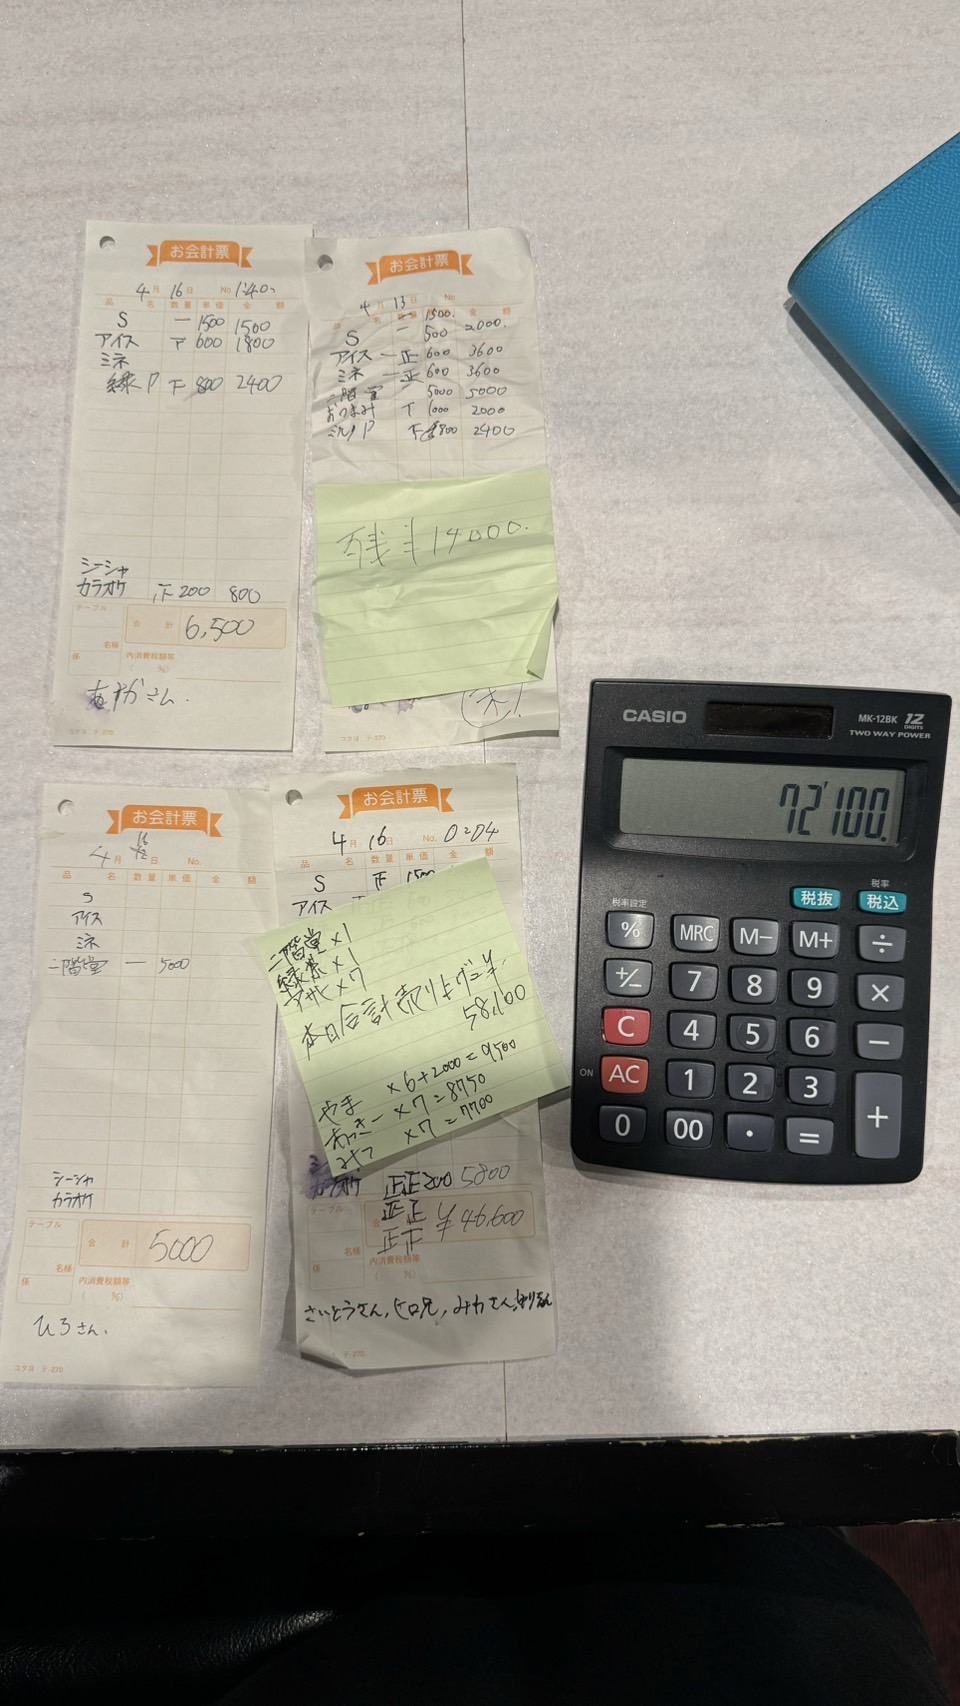 お会計票
4月 16日 No. 1:40
品 名 数量 単価 金 額
S 一 1500 1500
アイス 下 600 1800
ミネ
緑P 下 800 2400
シーシャ
カラオケ 正 200 800
テーブル
合 計 6,500
名様
係
内消費税額等
( %)
さん.
コクヨ テ-270
お会計票
4月 13日 No.
品 名 数量 単価 金 額
1500.
S 一 500 2000.
アイス 一正 600 3600
ミネ 一正 600 3600
二階堂 5000 5000
おつまみ T 1000 2000
P 下 800 2400
残 ¥19000.
コクヨ テ-270
お会計票
4月 16日 No.
品 名 数量 単価 金 額
S
アイス
ミネ
二階堂 一 5000
シーシャ
カラオケ
テーブル
合 計 5000
名様
係
内消費税額等
( %)
ひろさん.
コクヨ テ-270
お会計票
4月 16日 No. 0:04
品 名 数量 単価 金 額
S 下 1500
アイス
二階堂×1
緑茶×1
アサヒ×7
本日合計売り上げ=¥
58,100
やま ×6+2000=9500
あっきー ×7=8750
みつ ×7=7700
カラオケ 正正 200 5800
正正
合 計 ¥46,600
正正
名様
内消費税額等
( %)
さいとうさん, ヒロ兄, みわさん,
テ-270
CASIO
MK-12BK 12 DIGITS
TWO WAY POWER
72'100.
税率
税率設定 税抜 税込
% MRC M− M+ ÷
+/− 7 8 9 ×
C 4 5 6 −
ON AC 1 2 3 +
0 00 · =